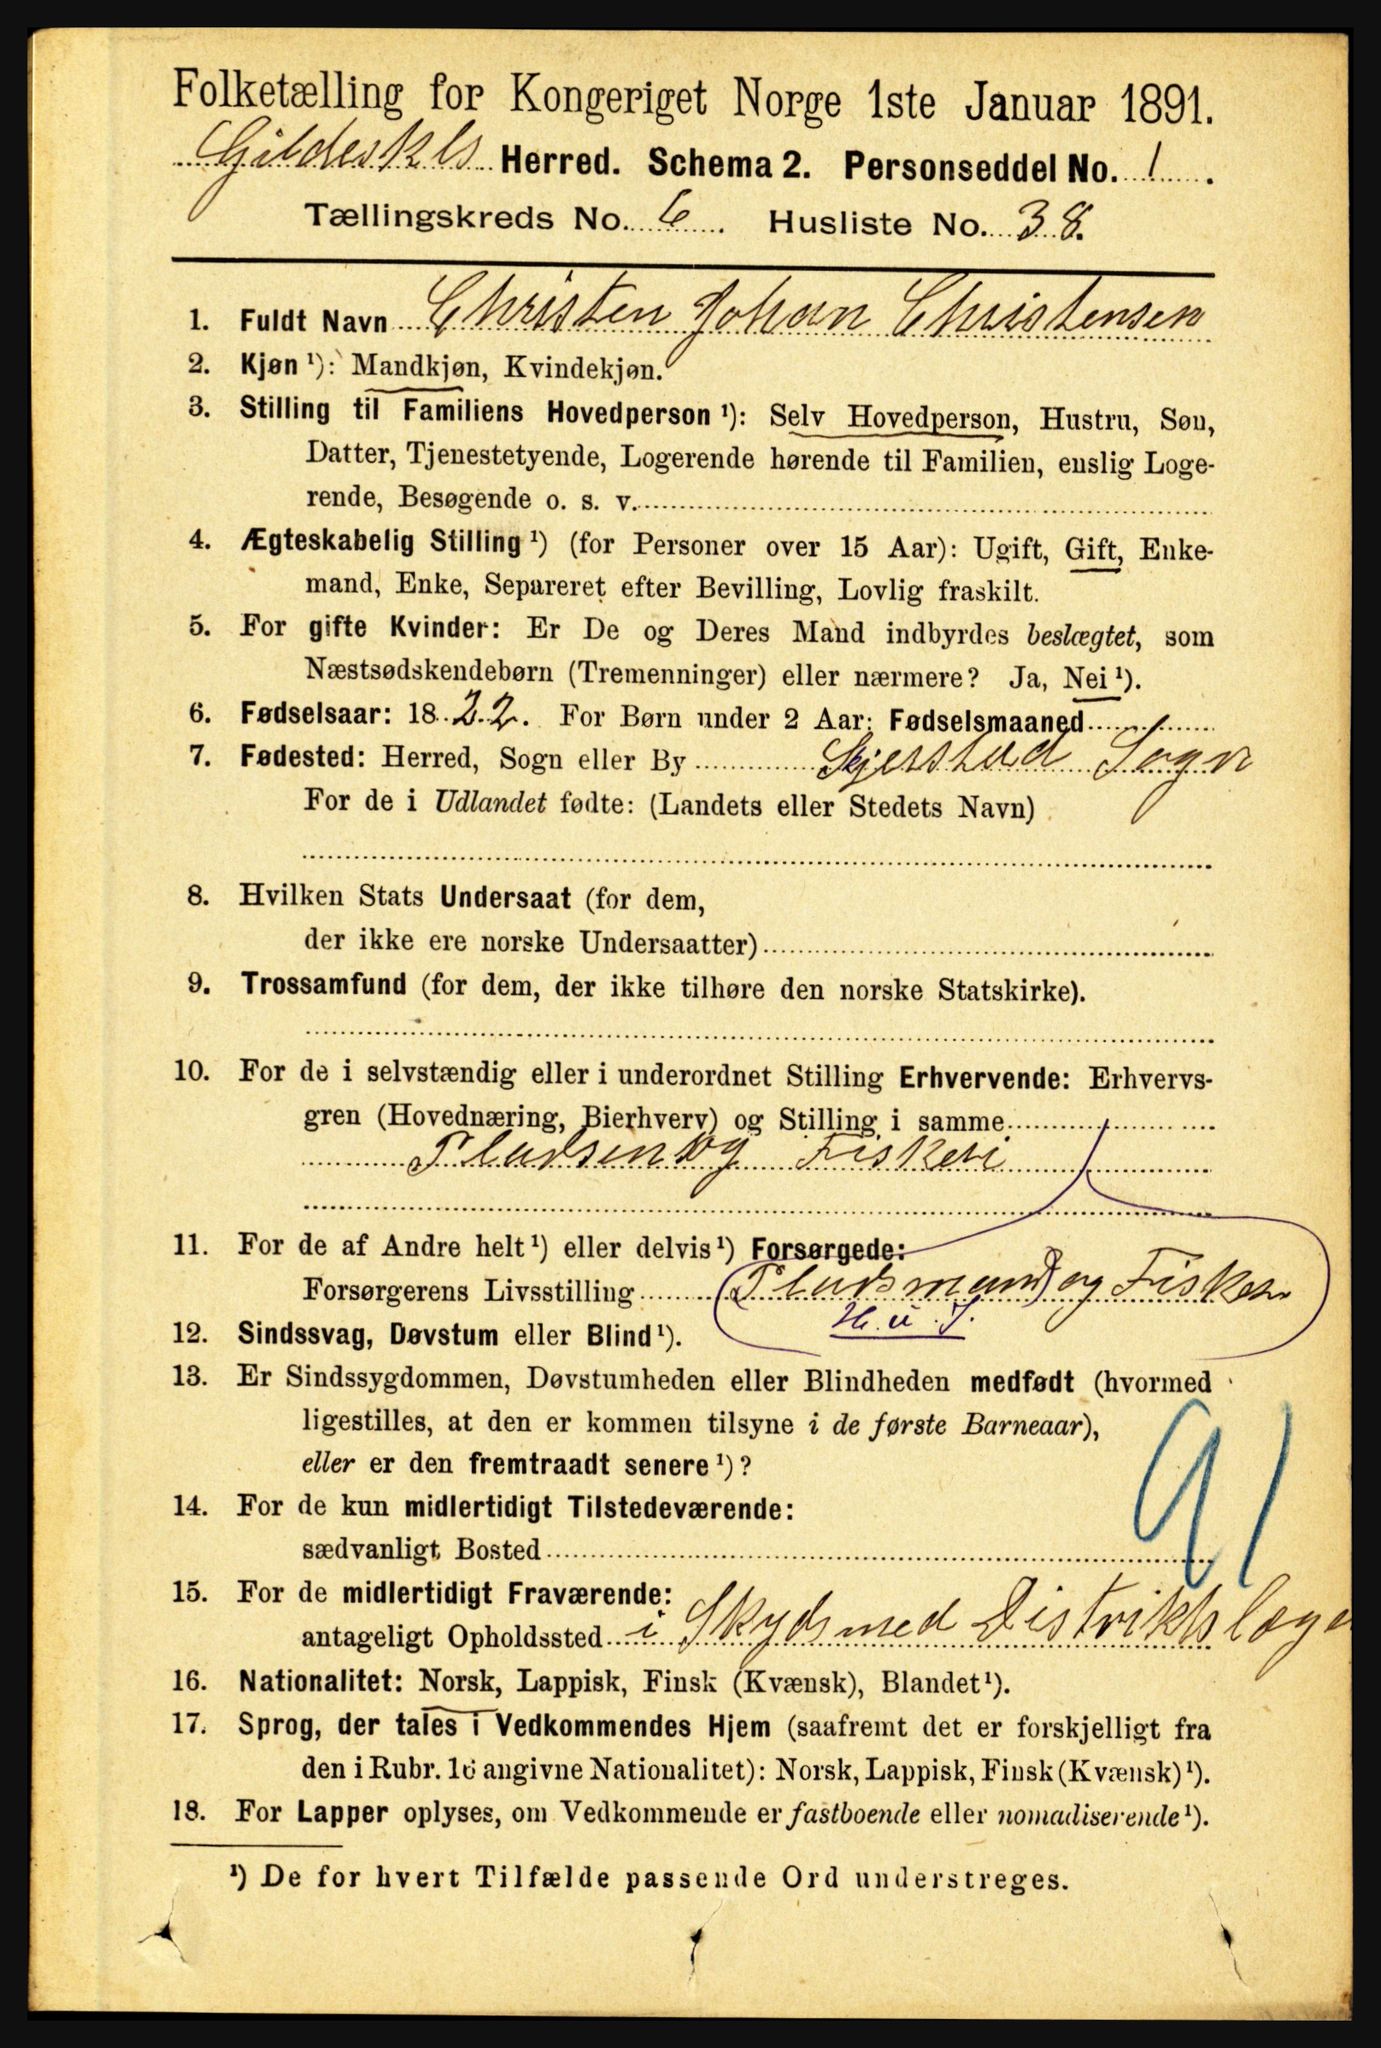 Folketælling for Kongeriget Norge 1ste Januar 1891.
Gildeskls Herred. Schema 2. Personseddel No. 1.
Tællingskreds No. 6. Husliste No. 38.
1. Fuldt Navn Christen Johan Christensen
2. Kjøn ¹): Mandkjøn, Kvindekjøn.
3. Stilling til Familiens Hovedperson ¹): Selv Hovedperson, Hustru, Søn,
Datter, Tjenestetyende, Logerende hørende til Familien, enslig Loge-
rende, Besøgende o. s. v.
4. Ægteskabelig Stilling ¹) (for Personer over 15 Aar): Ugift, Gift, Enke-
mand, Enke, Separeret efter Bevilling, Lovlig fraskilt.
5. For gifte Kvinder: Er De og Deres Mand indbyrdes beslægtet, som
Næstsødskendebørn (Tremenninger) eller nærmere? Ja, Nei ¹).
6. Fødselsaar: 1822. For Børn under 2 Aar: Fødselsmaaned
7. Fødested: Herred, Sogn eller By Skjerstad Sogn
For de i Udlandet fødte: (Landets eller Stedets Navn)
8. Hvilken Stats Undersaat (for dem,
der ikke ere norske Undersaatter)
9. Trossamfund (for dem, der ikke tilhøre den norske Statskirke).
10. For de i selvstændig eller i underordnet Stilling Erhvervende: Erhvervs-
gren (Hovednæring, Bierhverv) og Stilling i samme
Pladsen og Fiskeri
11. For de af Andre helt ¹) eller delvis ¹) Forsørgede:
Forsørgerens Livsstilling Pladsmand og Fisker
H. u. J.
12. Sindssvag, Døvstum eller Blind ¹).
13. Er Sindssygdommen, Døvstumheden eller Blindheden medfødt (hvormed
ligestilles, at den er kommen tilsyne i de første Barneaar),
eller er den fremtraadt senere ¹)?
91
14. For de kun midlertidigt Tilstedeværende:
sædvanligt Bosted
15. For de midlertidigt Fraværende:
antageligt Opholdssted i Skyds med Distriktslæge
16. Nationalitet: Norsk, Lappisk, Finsk (Kvænsk), Blandet ¹).
17. Sprog, der tales i Vedkommendes Hjem (saafremt det er forskjelligt fra
den i Rubr. 16 angivne Nationalitet): Norsk, Lappisk, Finsk (Kvænsk) ¹).
18. For Lapper oplyses, om Vedkommende er fastboende eller nomadiserende ¹).
¹) De for hvert Tilfælde passende Ord understreges.